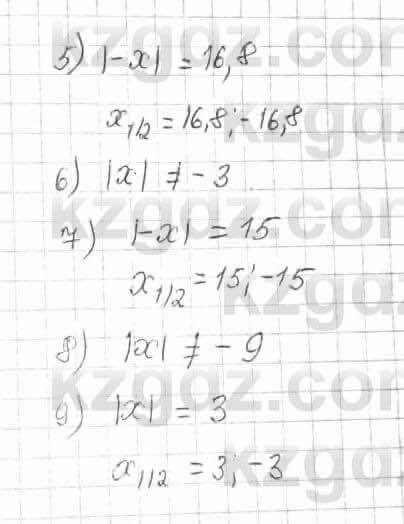 5) |-x| = 16,8
x1/2 = 16,8; -16,8
6) |x| ≠ -3
7) |-x| = 15
x1/2 = 15; -15
8) |x| ≠ -9
9) |x| = 3
x1/2 = 3; -3
kzgdz.com